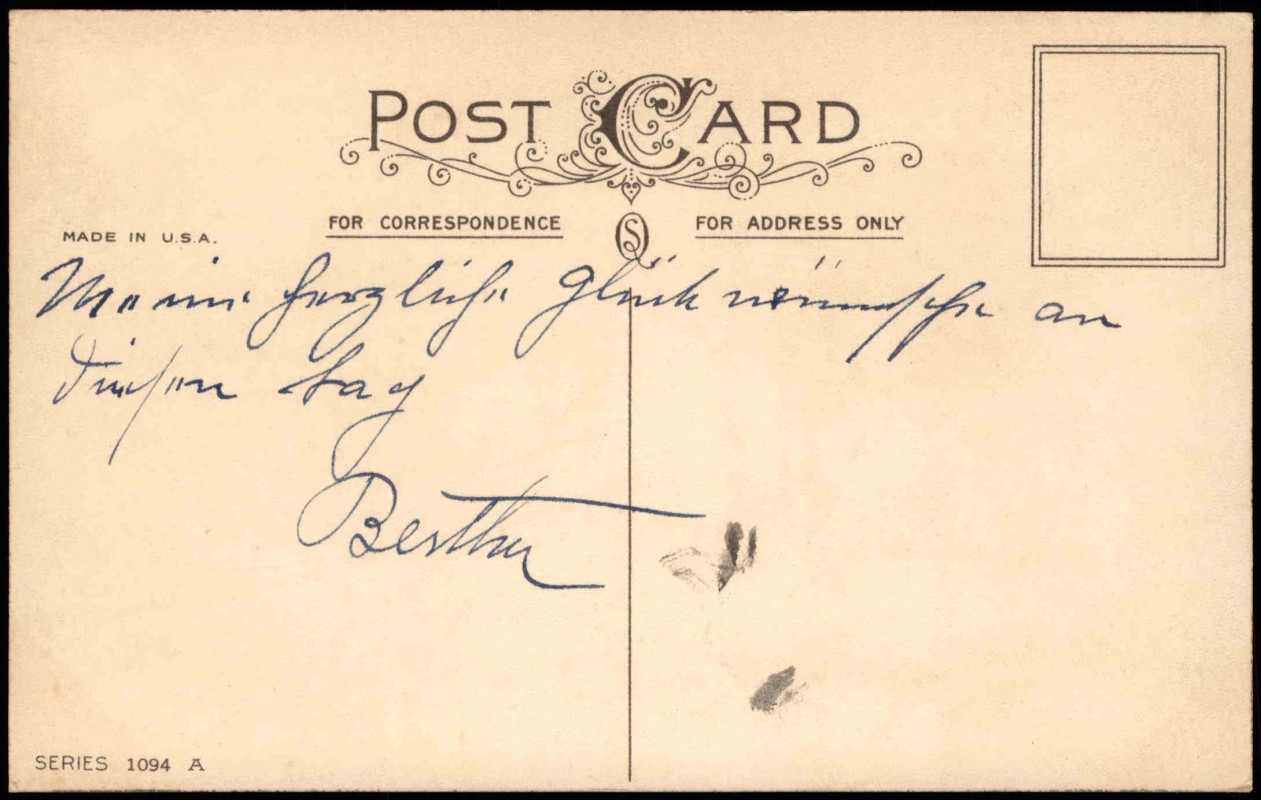 POST CARD
FOR CORRESPONDENCE
FOR ADDRESS ONLY
MADE IN U.S.A.
Meine herzliche Glückwünsche an
diesen tag
Bertha
SERIES 1094 A